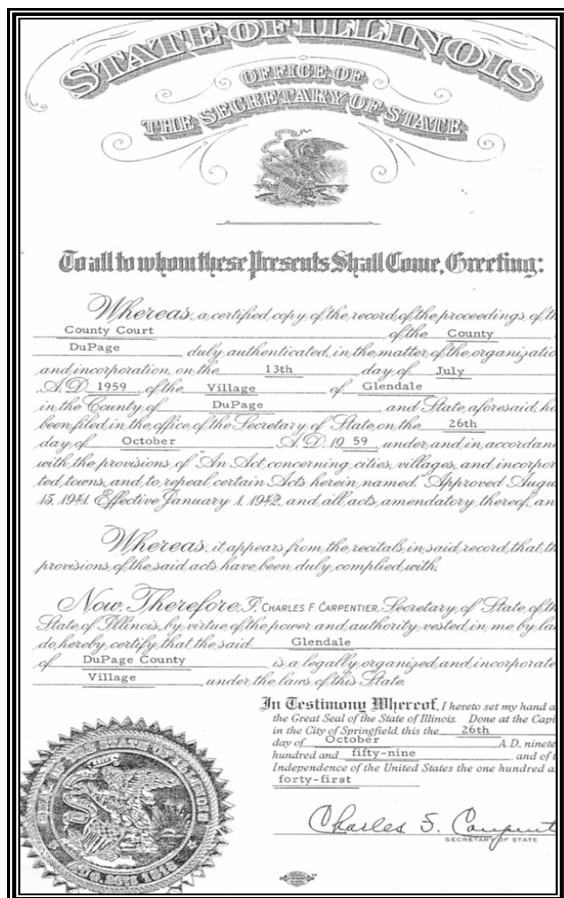 STATE OF ILLINOIS
OFFICE OF
THE SECRETARY OF STATE
To all to whom these Presents Shall Come, Greeting:
Whereas, a certified copy of the record of the proceedings, of th
County Court of the County
DuPage duly authenticated, in the matter of the organizatio
and incorporation, on the 13th day of July
A.D. 1959, of the Village of Glendale
in the County of DuPage and State, aforesaid, ha
been filed in the office of the Secretary of State, on the 26th
day of October A.D. 19 59 under and in accordan
with the provisions of "An Act concerning cities, villages, and incorpor
ted towns, and to repeal certain Acts herein named." Approved Augu
15, 1941. Effective January 1, 1942, and all acts amendatory thereof, an
Whereas, it appears from the recitals in said record, that th
provisions of the said acts have been duly complied with,
Now Therefore, I, CHARLES F. CARPENTIER, Secretary of State of th
State of Illinois, by virtue of the power and authority vested in me by la
do hereby certify that the said Glendale
of DuPage County is a legally organized and incorporate
Village under the laws of this State.
In Testimony Whereof, I hereto set my hand a
the Great Seal of the State of Illinois. Done at the Capi
in the City of Springfield, this the 26th
day of October A.D. ninete
hundred and fifty-nine and of t
Independence of the United States the one hundred a
forty-first
Charles F. Carpent
SECRETARY OF STATE
STATE OF ILLINOIS
AUG. 26TH 1818